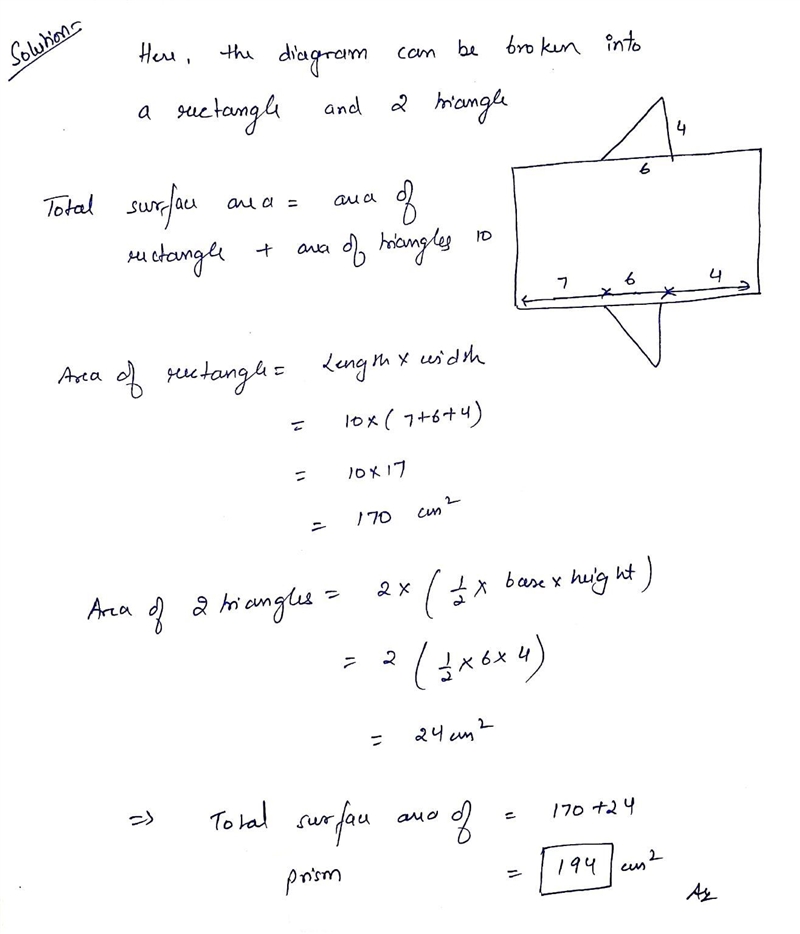 Solution:-
Here, the diagram can be broken into
a rectangle and 2 triangle
4
6
Total surface area = area of
rectangle + area of triangles
10
7 6 4
Area of rectangle = Length × width
= 10×(7+6+4)
= 10×17
= 170 cm²
Area of 2 triangles = 2× (1/2 × base × height)
= 2 (1/2 × 6 × 4)
= 24 cm²
=> Total surface area of = 170 + 24
prism = 194 cm²